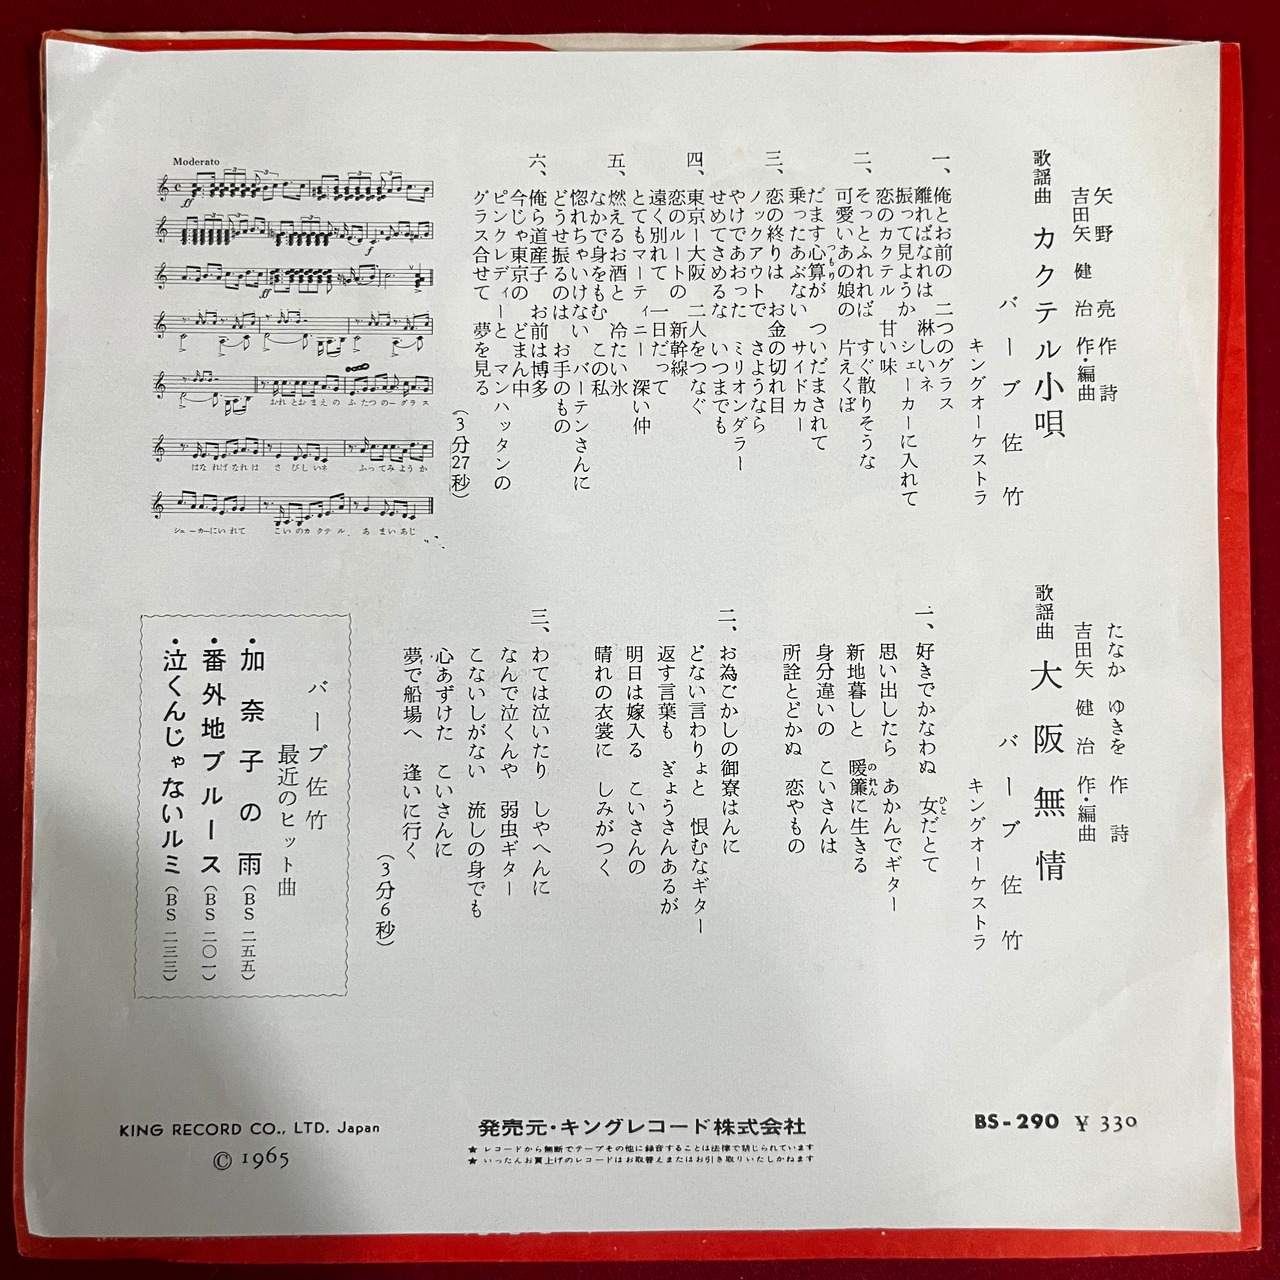 矢野 亮 作詩
吉田矢 健治 作・編曲
歌謡曲 カクテル小唄
バーブ 佐竹
キングオーケストラ
一、俺とお前の 二つのグラス
離ればなれは 淋しいネ
振って見ようか シェーカーに入れて
恋のカクテル 甘い味
二、そっとふれれば すぐ散りそうな
可愛いあの娘の 片えくぼ
だます心算が ついだまされて
つもり
乗ったあぶない サイドカー
三、恋の終りは お金の切れ目
ノックアウトで さようなら
やけであおった ミリオンダラー
せめてさめるな いつまでも
四、東京ー大阪 二人をつなぐ
恋のルートの 新幹線
遠く別れて 一日だって
とてもマーティニー 深い仲
五、燃えるお酒と 冷たい氷
なかで身をもむ この私
惚れちゃいけない バーテンさんに
どうせ振るのは お手のもの
六、俺ら道産子 お前は博多
今じゃ東京の どまん中
ピンクレディーと マンハッタンの
グラス合せて 夢を見る
(3分27秒)
Moderato
おれとおまえの ふたつのーグラス
はなればなれは さびしいネ ふってみようか
シェーカーにいれて こいのカクテル、 あまいあじ
たなか ゆきを 作詩
吉田矢 健治 作・編曲
歌謡曲 大阪無情
バーブ 佐竹
キングオーケストラ
一、好きでかなわぬ 女だとて
ひと
思い出したら あかんでギター
新地暮しと 暖簾に生きる
のれん
身分違いの こいさんは
所詮とどかぬ 恋やもの
二、お為ごかしの御寮はんに
どない言わりょと 恨むなギター
返す言葉も ぎょうさんあるが
明日は嫁入る こいさんの
晴れの衣裳に しみがつく
三、わては泣いたり しやへんに
なんで泣くんや 弱虫ギター
こないしがない 流しの身でも
心あずけた こいさんに
夢で船場へ 逢いに行く
(3分6秒)
バーブ佐竹
最近のヒット曲
・加奈子の雨(BS 二五五)
・番外地ブルース(BS 二〇一)
・泣くんじゃないルミ(BS 二三三)
KING RECORD CO., LTD. Japan
© 1965
発売元・キングレコード株式会社
★ レコードから無断でテープその他に録音することは法律で禁じられています
★ いったんお買上げのレコードはお取替えまたはお引き取りいたしかねます
BS-290 ¥ 330